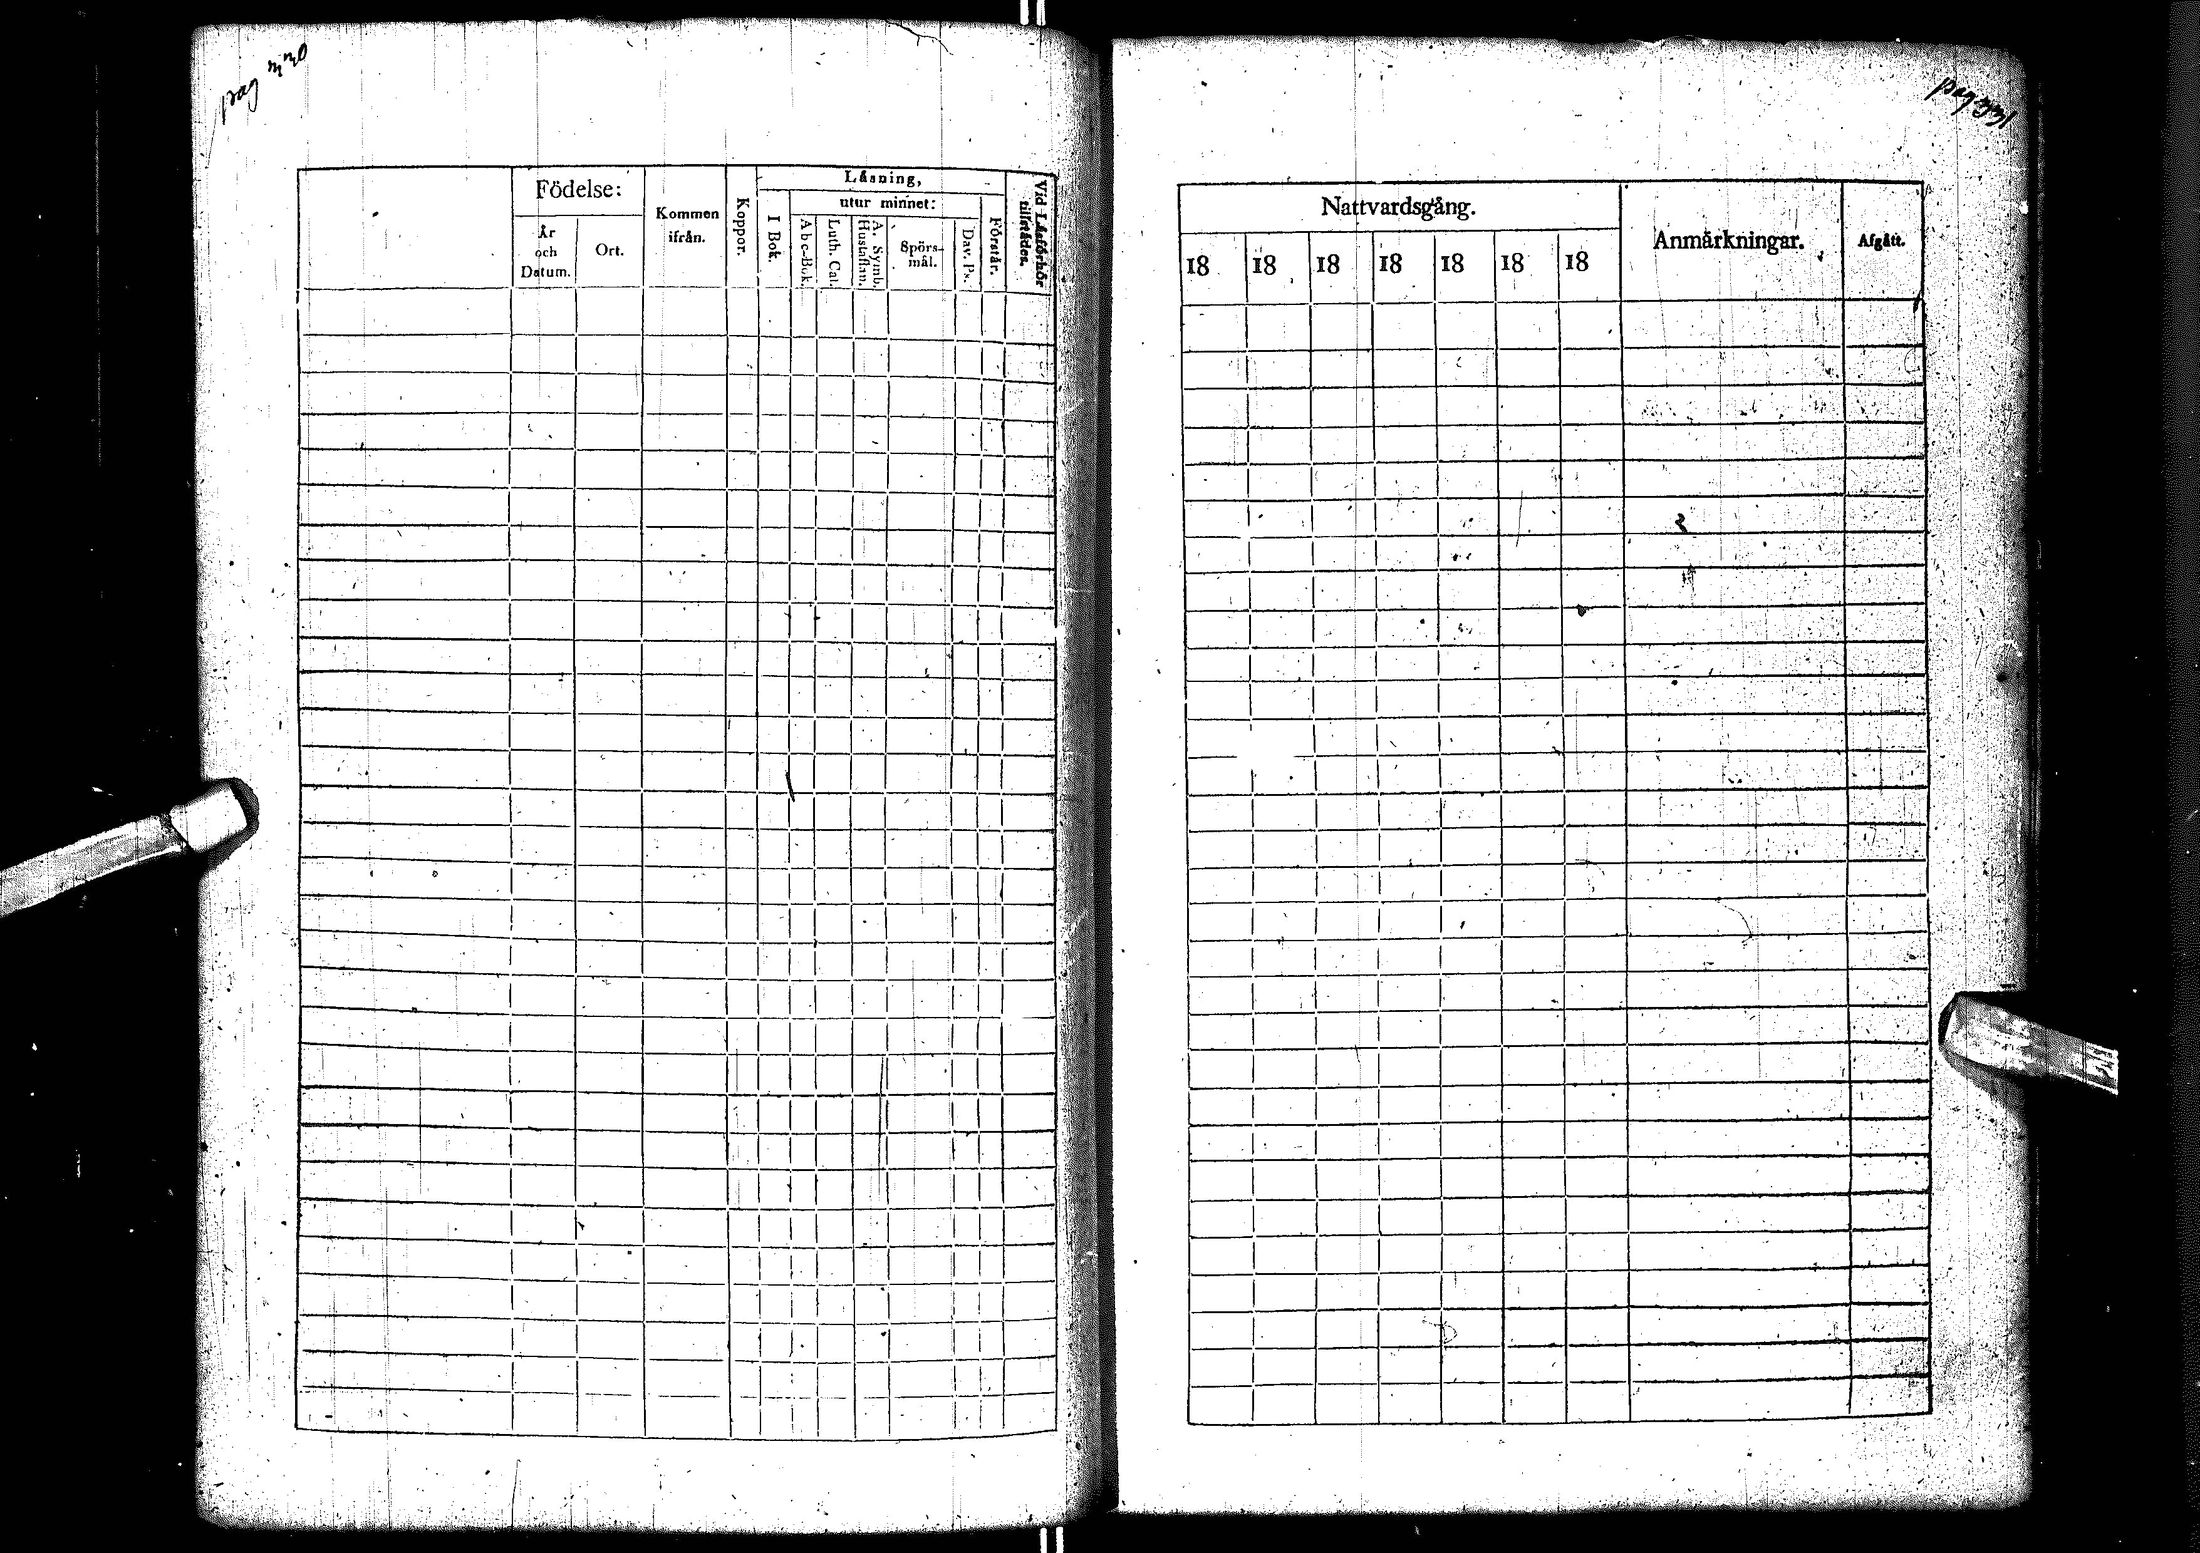 pag 330
Födelse:
År
och
Datum.
Ort.
Kommen
ifrån.
Koppor.
Läsning,
I Bok.
utur minnet:
Abc-Bok.
Luth. Cat.
A. Symb.
Hustaflan.
Spörs-
mål.
Dav. Ps.
Förstår.
Vid Läsförhör
tillstädes.
pag 331
Nattvardsgång.
18 18 18 18 18 18 18
Anmärkningar.
Afgått.